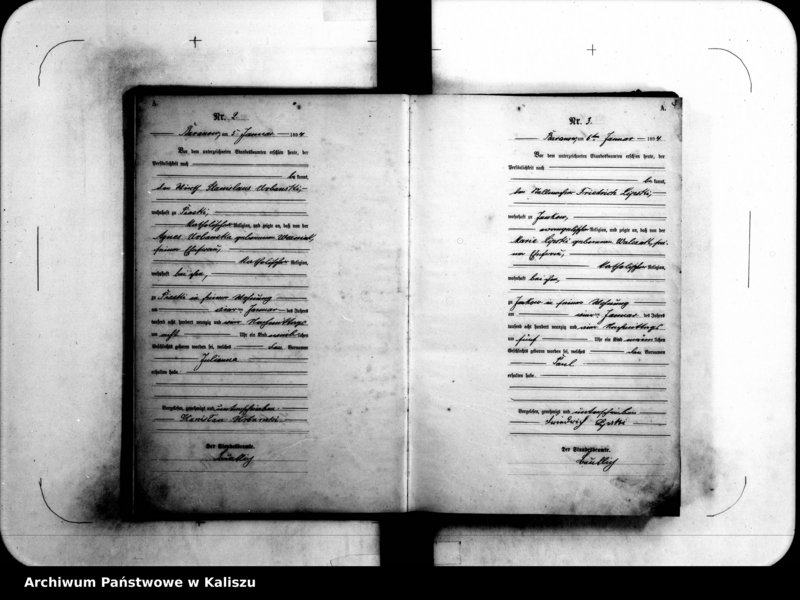 A.
Nr. 2
Baranow, am 5 Januar 1894
Vor dem unterzeichneten Standesbeamten erschien heute, der
Persönlichkeit nach
be kannt,
den Wirth Stanislaus Urbanski,
wohnhaft zu Piaski,
katholischer Religion, und zeigte an, daß von der
Agnes Urbanska geborenen
seiner Ehefrau,
katholischer Religion,
wohnhaft bei ihm,
zu Piaski in seiner Wohnung
am Januar des Jahres
tausend acht hundert neunzig und vier Nachmittags
um Uhr ein Kind weib lichen
Geschlechts geboren worden sei, welches den Vornamen
Julianna
erhalten habe.
Vorgelesen, genehmigt und unterschrieben
Stanisław Urbanski
Der Standesbeamte.
A.
Nr. 3.
Baranow, am 6ten Januar 1894
Vor dem unterzeichneten Standesbeamten erschien heute, der
Persönlichkeit nach
be kannt,
der Friedrich Lipski,
wohnhaft zu Jankow,
evangelischer Religion, und zeigte an, daß von der
Marie Lipski geborenen Walczak, sei-
ner Ehefrau,
katholischer Religion,
wohnhaft bei ihm,
zu Jankow in seiner Wohnung
am Januar des Jahres
tausend acht hundert neunzig und vier Nachmittags
um fünf Uhr ein Kind männ lichen
Geschlechts geboren worden sei, welches den Vornamen
Paul
erhalten habe.
Vorgelesen, genehmigt und unterschrieben
Friedrich Lipski
Der Standesbeamte.
Archiwum Państwowe w Kaliszu